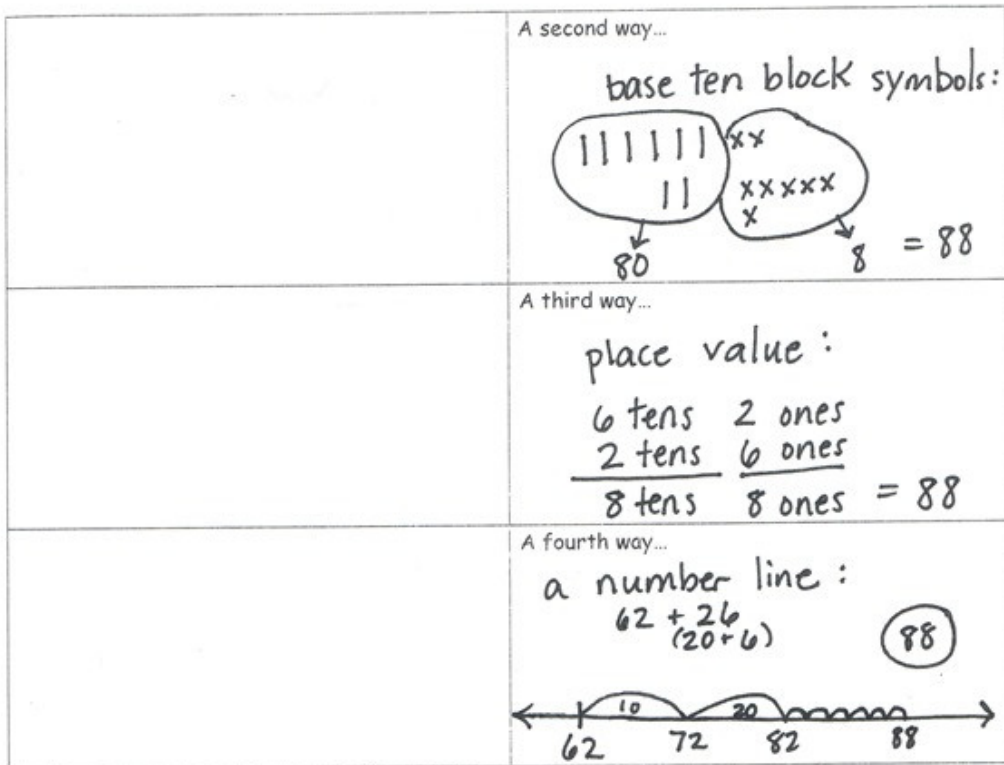 A second way...
base ten block symbols:
| | | | | | x x
| | x x x x x
x
80 8 = 88
A third way...
place value :
6 tens 2 ones
2 tens 6 ones
8 tens 8 ones = 88
A fourth way...
a number line :
62 + 26
(20 + 6)
88
10 20
62 72 82 88